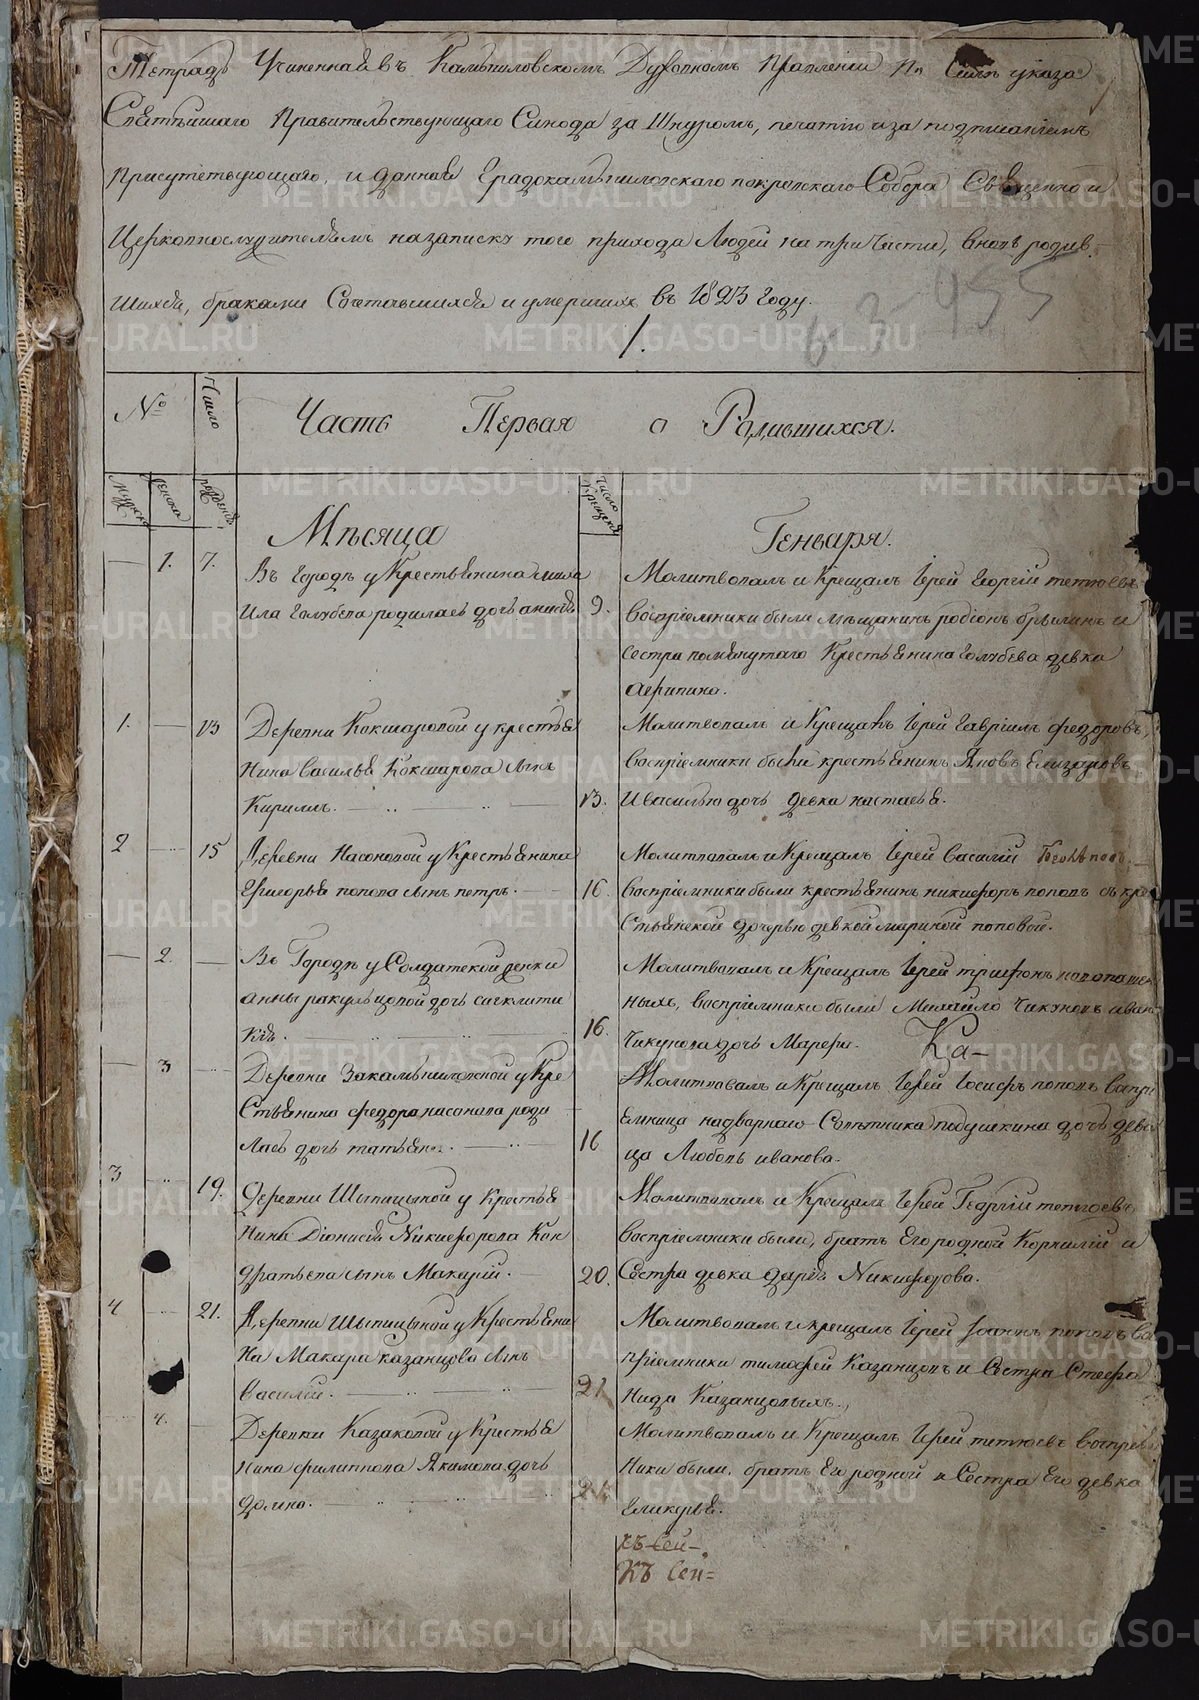 Тетрадь Учиненная въ Камышловскомъ Духовномъ Правленiи по Силѣ указа
Святѣйшаго Правительствующаго Синода за Шнуромъ, печатiю и за подписанiемъ
Присутствующаго, и данная Градокамышловскаго покровскаго Собора Священно и
Церковнослужителямъ на записку того прихода Людей на три Части, вновь родив-
шихся, браками Сочетавшихся и умершихъ въ 1823 Году.
1.
№ Число Часть Первая о Родившихся.
мужеска женска рожденiя Число крещенiя
Мѣсяца Генваря.
1. 7. Въ Городѣ у Крестьянина
Голубева родилась дочь 9.
Молитвовалъ и Крещалъ Iерей Георгiй
Воспрiемники были мѣщанинъ родiонъ и
Сестра помянутаго Крестьянина Голубева девка
агрипина.
1. 13 Деревни Кокшаровой у крестья
нина Василья Кокшарова сынъ
Кирилъ. 13.
Молитвовалъ и Крещалъ Iерей Гаврiилъ федоровъ,
воспрiемники были крестьянинъ Яковъ Елизаровъ
И василью дочь девка настасья.
2 15 Деревни Насоновой у Крестьянина
Григорья попова сынъ петръ. 16.
Молитвовалъ и Крещалъ Iерей Василiй
Воспрiемники были крестьянинъ никифоръ поповъ съ кре
стьянской дочерью девкой мариной поповой.
2. Въ Городѣ у Солдатской
анны дочь
16.
Молитвовалъ и Крещалъ Iерей трифонъ
ныхъ, воспрiемники были Михайло Чикуновъ
Чикунова дочь Марфа. Ка-
3 Деревни Закамышловской у Кре
стьянина федора насонова роди
лась дочь татьяна. 16
Молитвовалъ и Крещалъ Iерей Iосифъ поповъ воспрi
емница надворнаго Совѣтника подушкина дочь деви
ца Любовь иванова.
3 19. Деревни Шипицыной у Крестья
нина Дiонисiя Никифорова Кон
дратьева сынъ Макарiй. 20.
Молитвовалъ и Крещалъ Iерей Георгiй
Воспрiемники были, братъ Его родной Корнилiй и
Сестра девка дарiя Никифорова.
4 21. Деревни Шипицыной у Крестьяни
на Макара казанцова сынъ
Василiй. 21
Молитвовалъ и крещалъ Iерей Iоаннъ поповъ Во
прiемники тимофей Казанцовъ и Сестра Стефа
нида Казанцовыхъ.,
4. Деревни Казаковой у Крестья
нина филиппова Якимова дочь
домна. 21.
Молитвовалъ и Крещалъ Iерей воспрiем
ники были, братъ Его родной и Сестра Его девка
гликерья.
къ сей-
Къ Сей=
63-955
METRIKI.GASO-URAL.RU